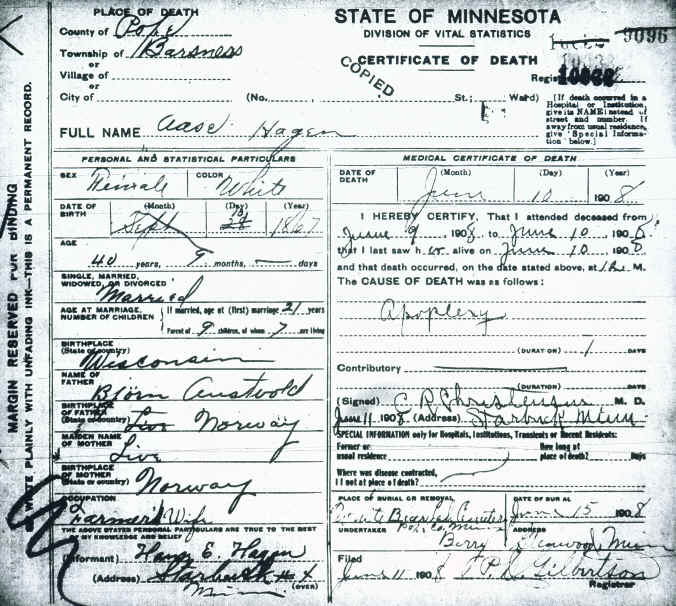 PLACE OF DEATH
County of Pope
Township of Barsness
or
Village of
or
City of (No. St.; Ward)
FULL NAME Aase Hagen
STATE OF MINNESOTA
DIVISION OF VITAL STATISTICS
CERTIFICATE OF DEATH
COPIED
9096
[If death occurred in a
Hospital or Institution,
give its NAME instead of
street and number. If
away from usual residence,
give "Special Information"
below.]
MARGIN RESERVED FOR BINDING
WRITE PLAINLY WITH UNFADING INK—THIS IS A PERMANENT RECORD.
PERSONAL AND STATISTICAL PARTICULARS
SEX Female COLOR White
DATE OF BIRTH (Month) (Day) (Year)
Sept 1867
AGE
40 years, 9 months, — days
SINGLE, MARRIED,
WIDOWED, OR DIVORCED
Married
AGE AT MARRIAGE, If married, age at (first) marriage 21 years
NUMBER OF CHILDREN Parent of 9 children, of whom 7 are living
BIRTHPLACE
(State or country) Wisconsin
NAME OF
FATHER Björn Austvold
BIRTHPLACE
OF FATHER
(State or country) Norway
MAIDEN NAME
OF MOTHER Live
BIRTHPLACE
OF MOTHER
(State or country) Norway
OCCUPATION
Farmer's Wife
THE ABOVE STATED PERSONAL PARTICULARS ARE TRUE TO THE BEST
OF MY KNOWLEDGE AND BELIEF
(Informant) Hans E. Hagen
(Address) Starbuck # 4
Minn. (OVER)
MEDICAL CERTIFICATE OF DEATH
DATE OF DEATH (Month) (Day) (Year)
June 10 1908
I HEREBY CERTIFY, That I attended deceased from
June 9 1908 to June 10 1908
that I last saw her alive on June 10 1908
and that death occurred, on the date stated above, at M.
The CAUSE OF DEATH was as follows:
Apoplexy
(DURATION) 1 DAYS
Contributory
(DURATION) DAYS
(Signed) C. R. Christenson M. D.
June 11 1908 (Address) Starbuck Minn.
SPECIAL INFORMATION only for Hospitals, Institutions, Transients or Recent Residents:
Former or
usual residence
How long at
place of death? Days
Where was disease contracted,
if not at place of death?
PLACE OF BURIAL OR REMOVAL
DATE OF BURIAL
June 15 1908
Pope Co. Minn.
UNDERTAKER ADDRESS
Berry Glenwood, Minn
Filed June 11 1908 Gilbertson
Registrar